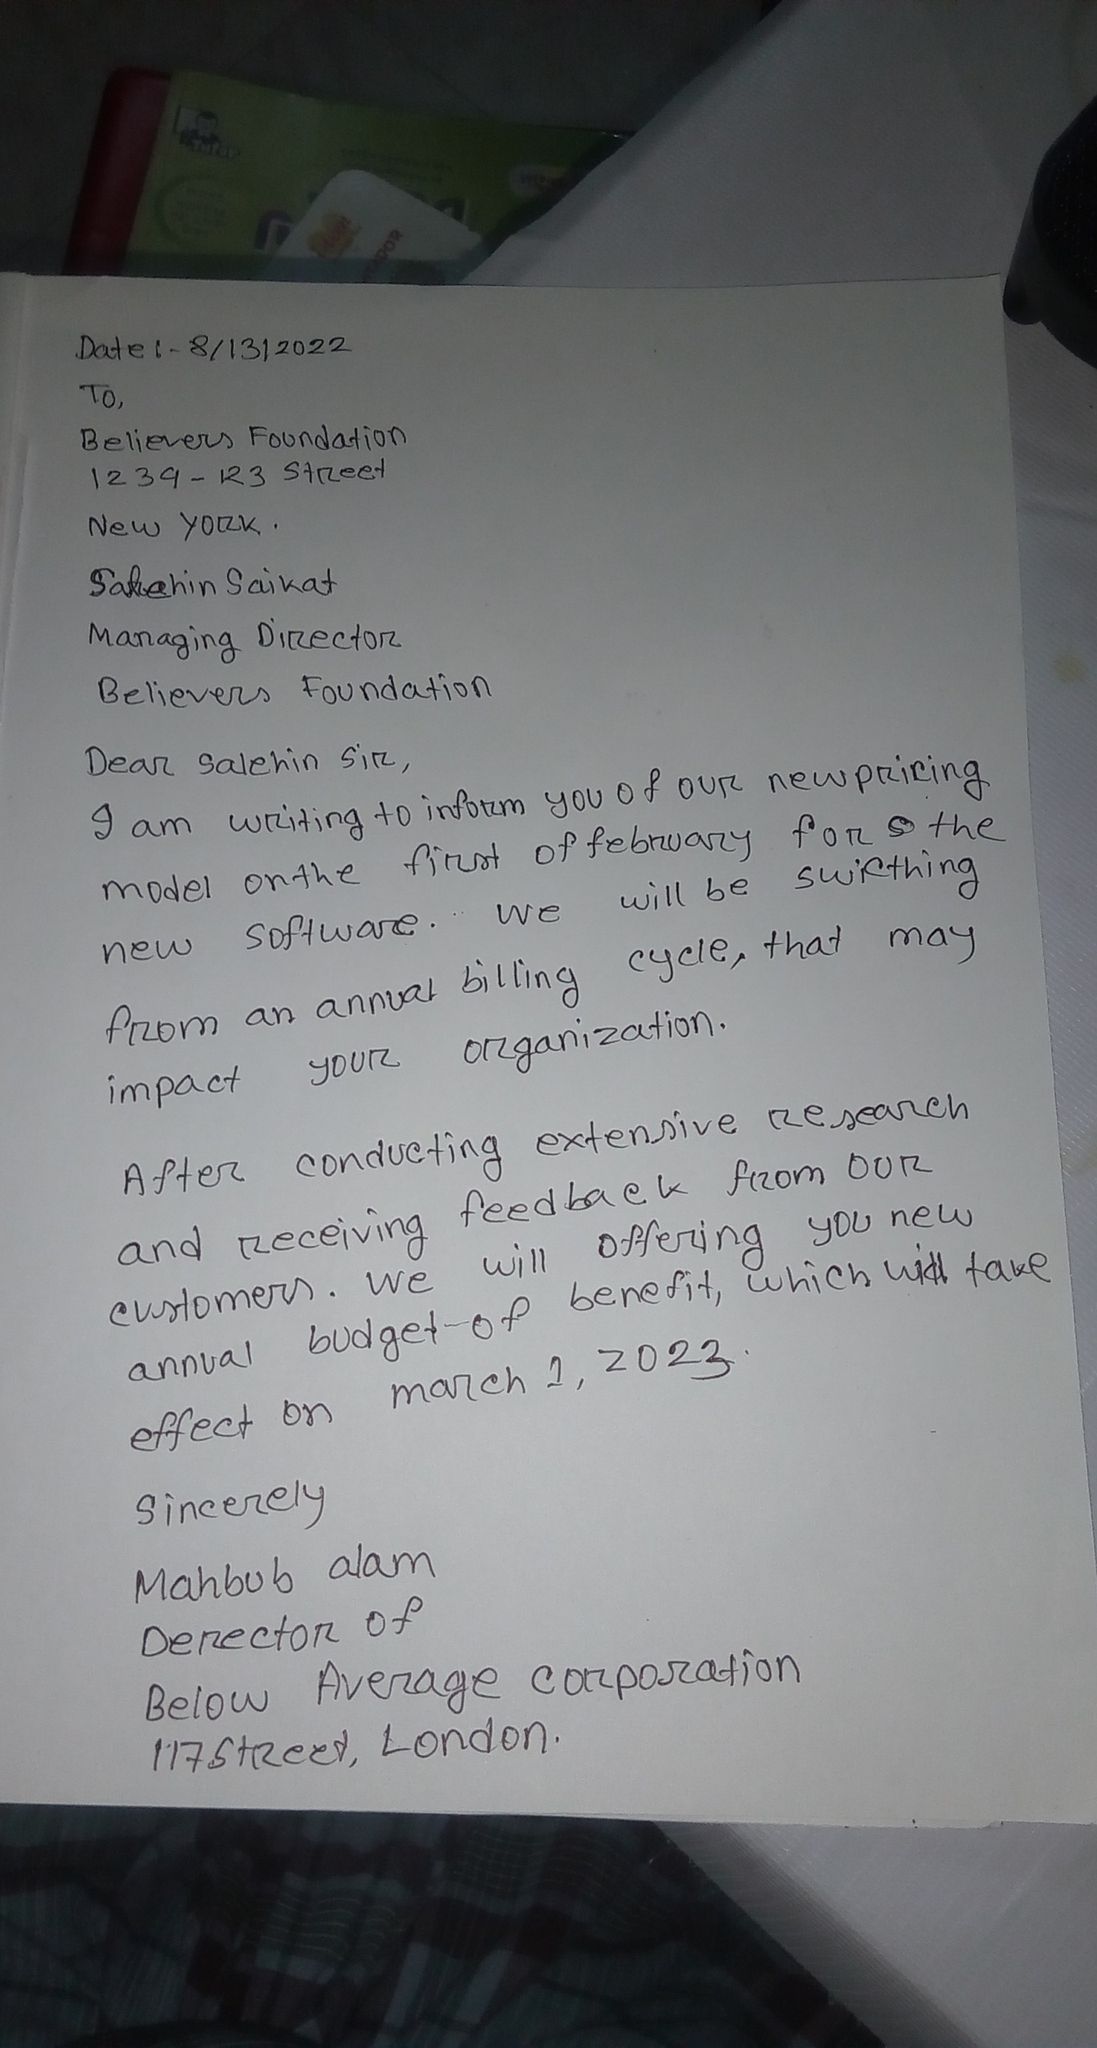 Date:- 8/13/2022
To,
Believers Foundation
1234-123 Street
New York.
Salehin Saikat
Managing Director
Believers Foundation
Dear Salehin Sir,
I am writing to inform you of our new pricing
model on the first of february for the
new software. We will be swicthing
from an annual billing cycle, that may
impact your organization.
After conducting extensive research
and receiving feedback from our
customers. We will offering you new
annual budget-of benefit, which will take
effect on march 1, 2023.
Sincerely
Mahbub alam
Derector of
Below Average corporation
117 Street, London.